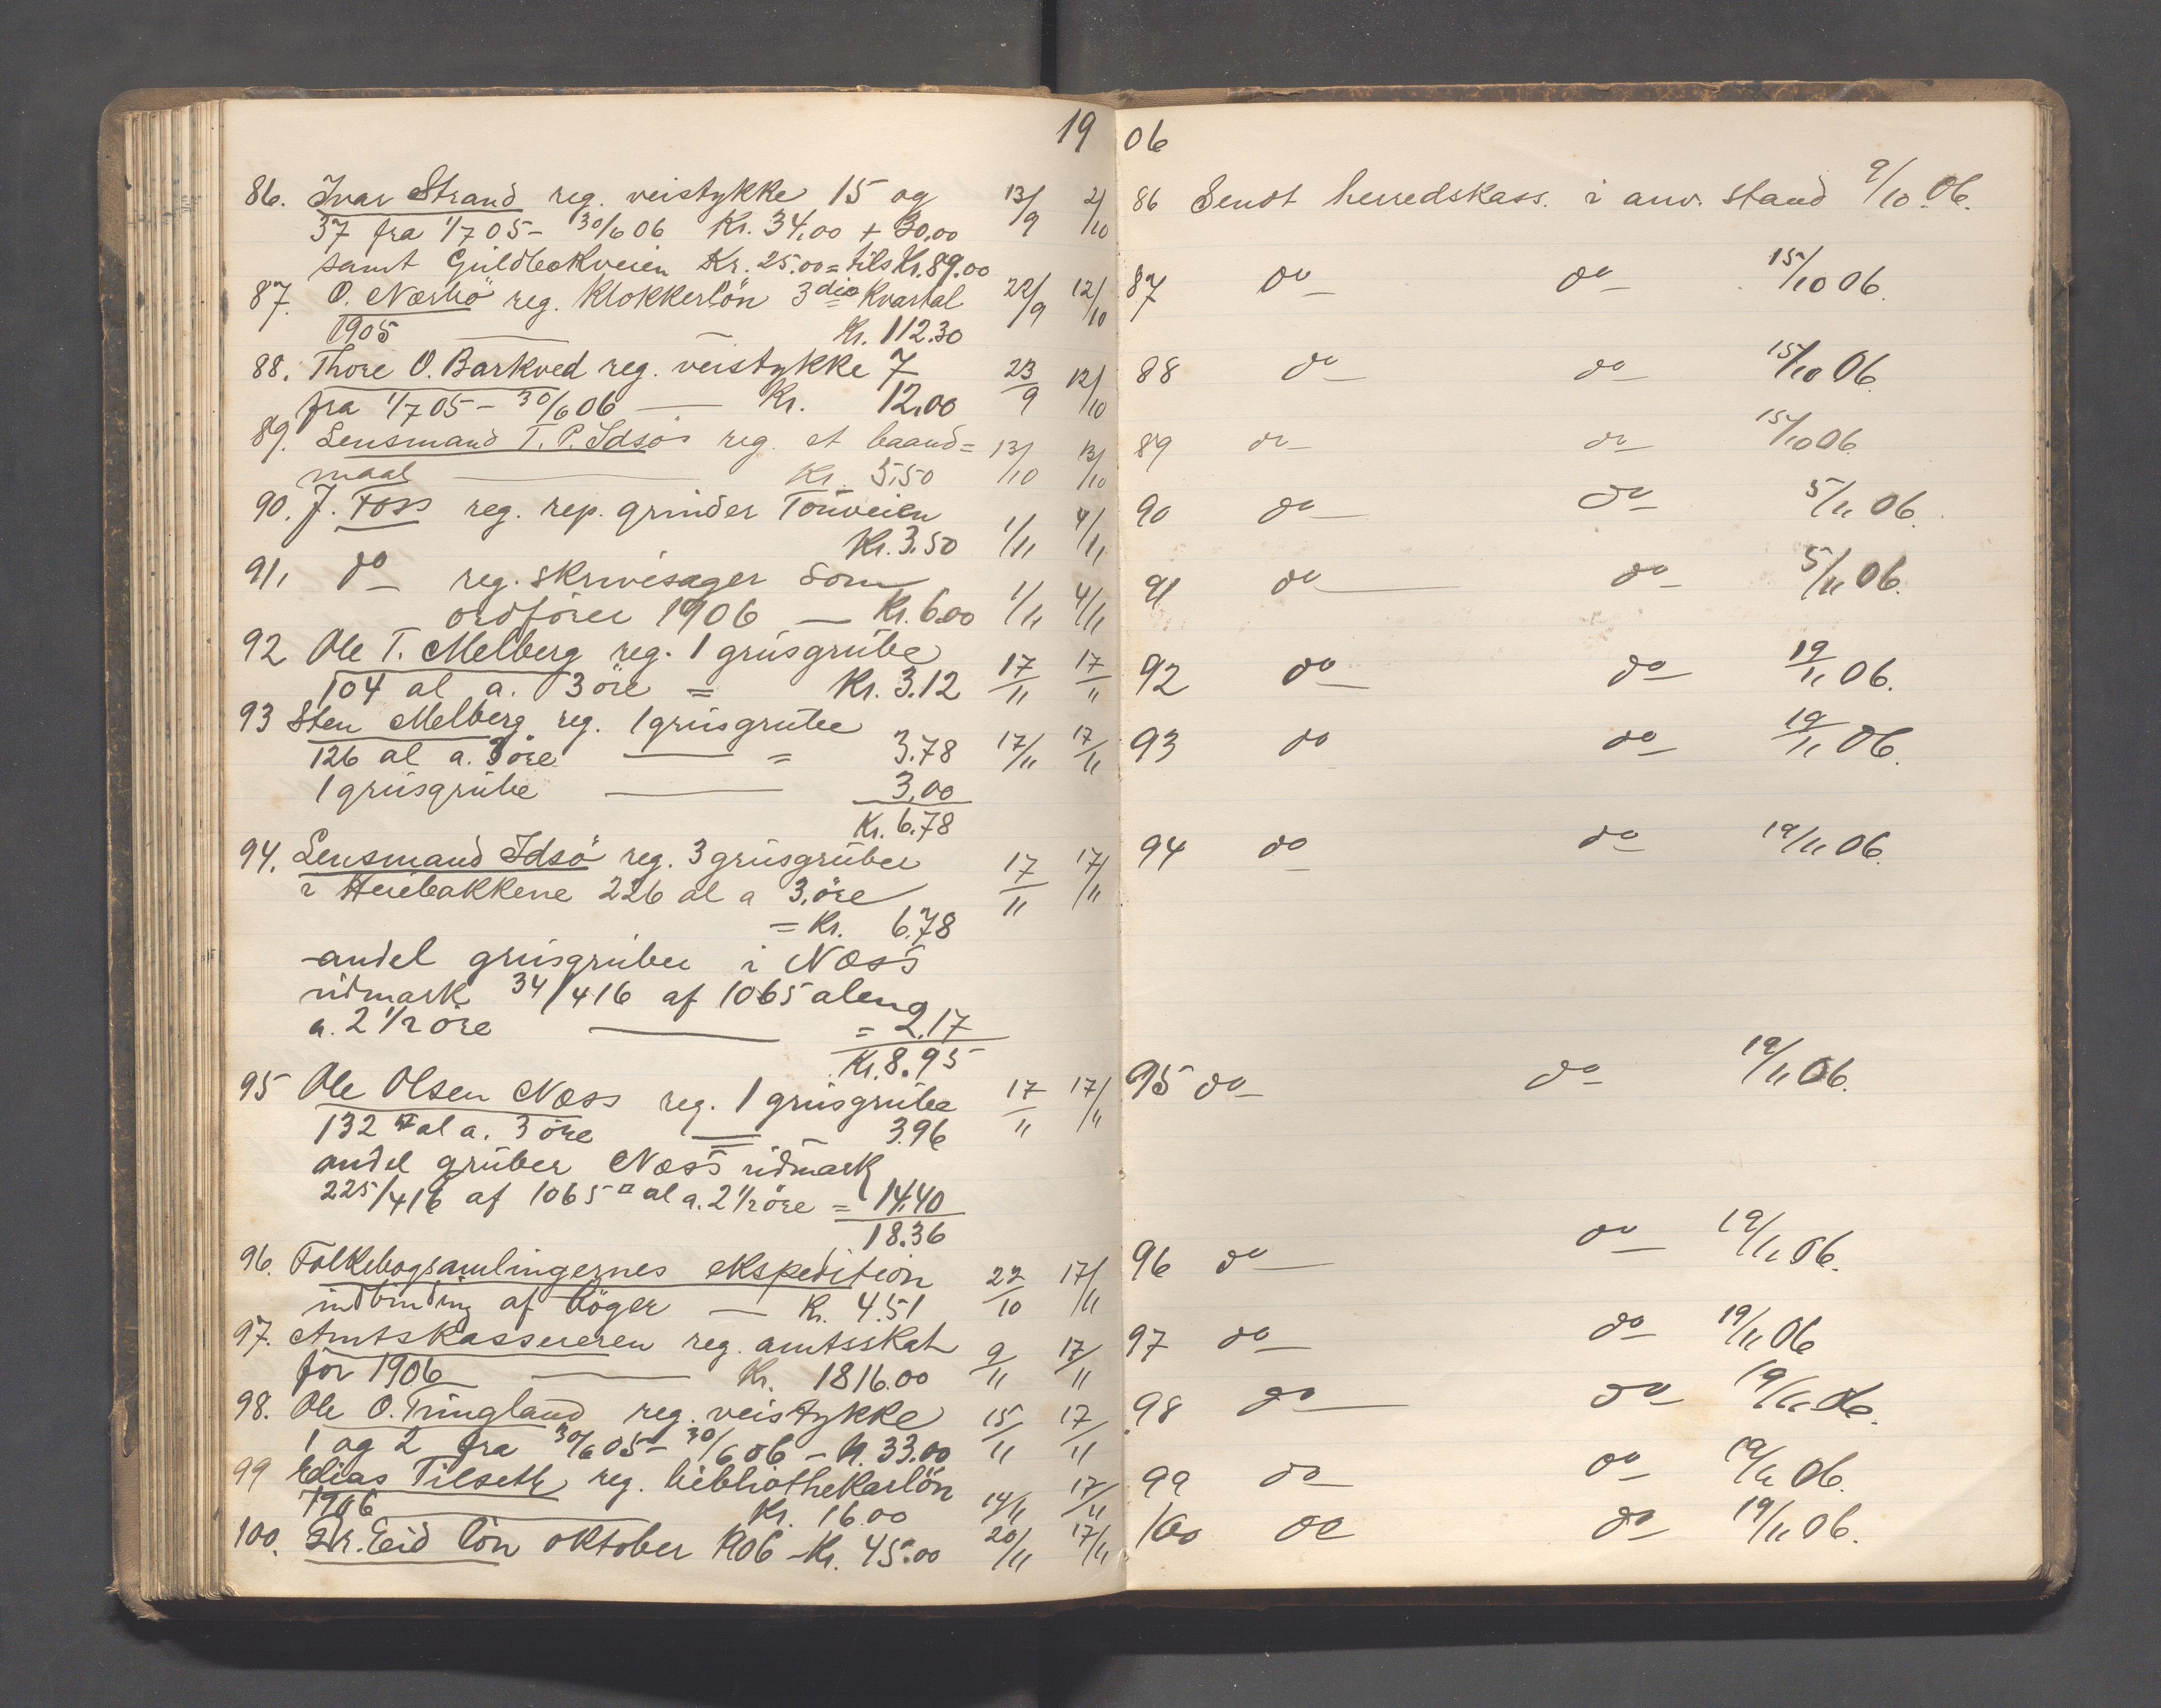 19 06
86. Ivar Strand reg. veistykke 15 og 13/9 2/10
37 fra 1/7 05 - 30/6 06 Kr. 34,00 + 30,00
samt Guldbekveien Kr. 25.00 = tils Kr. 89.00
87. O. Nærbö reg. Klokkerlön 3die Kvartal 22/9 12/10
1905 — Kr. 112.30
88. Thore O. Barkved reg. veistykke 7 23/9 12/10
fra 1/7 05 - 30/6 06 — Kr. 12.00
89. Lensmand T. P. Idsös reg. et baand= 13/10 13/10
maal — Kr. 5,50
90. J. Foss reg. rep. grinder Touveien
Kr. 3.50 1/11 4/11
91, do reg. skrivesager som
ordförer 1906 — Kr. 6.00 1/11 4/11
92 Ole T. Melberg reg. 1 grusgrube
104 al a. 3 öre = Kr. 3.12 17/11 17/11
93 Sten Melberg reg. 1 grusgrube
126 al a. 3 öre — = 3.78 17/11 17/11
1 grusgrube — 3,00
Kr. 6.78
94. Lensmand Idsö reg. 3 grusgruber 17/11 17/11
i Heiebakkene 226 al a 3, öre
= Kr. 6.78
andel grusgruber i Næss
udmark 34/416 af 1065 aleng
a. 2 1/2 öre — = 2.17
Kr. 8.95
95 Ole Olsen Næss reg. 1 grusgrube 17/11 17/11
132 □ al a. 3 öre = 3.96
andel gruber Næss udmark
225/416 af 1065 □ al a. 2 1/2 öre = 14.40
18.36
96. Folkebogsamlingernes ekspedition 22/10 17/11
indbinding af böger — Kr. 4.51
97. Amtskassereren reg. amtsskat 9/11 17/11
for 1906 — Kr. 1816.00
98. Ole O. Tringland reg. veistykke 15/11 17/11
1 og 2 fra 30/6 05 - 30/6 06 - Kr. 33.00
99 Elias Tilseth reg. bibliothekarlön
1906 — Kr. 16.00 14/11 17/11
100. Dr. Eid lön oktober 1906 - Kr. 45.00 20/11 17/11
86 Sendt herredskass. i anv. stand 9/10 06.
87 do do 15/10 06.
88 do do 15/10 06.
89 do do 15/10 06.
90 do do 5/11 06.
91 do do 5/11 06.
92 do do 19/11 06.
93 do do 19/11 06.
94 do do 19/11 06.
95 do do 19/11 06.
96 do do 19/11 06.
97 do do 19/11 06
98 do do 19/11 06.
99 do do 19/11 06.
100 do do 19/11 06.